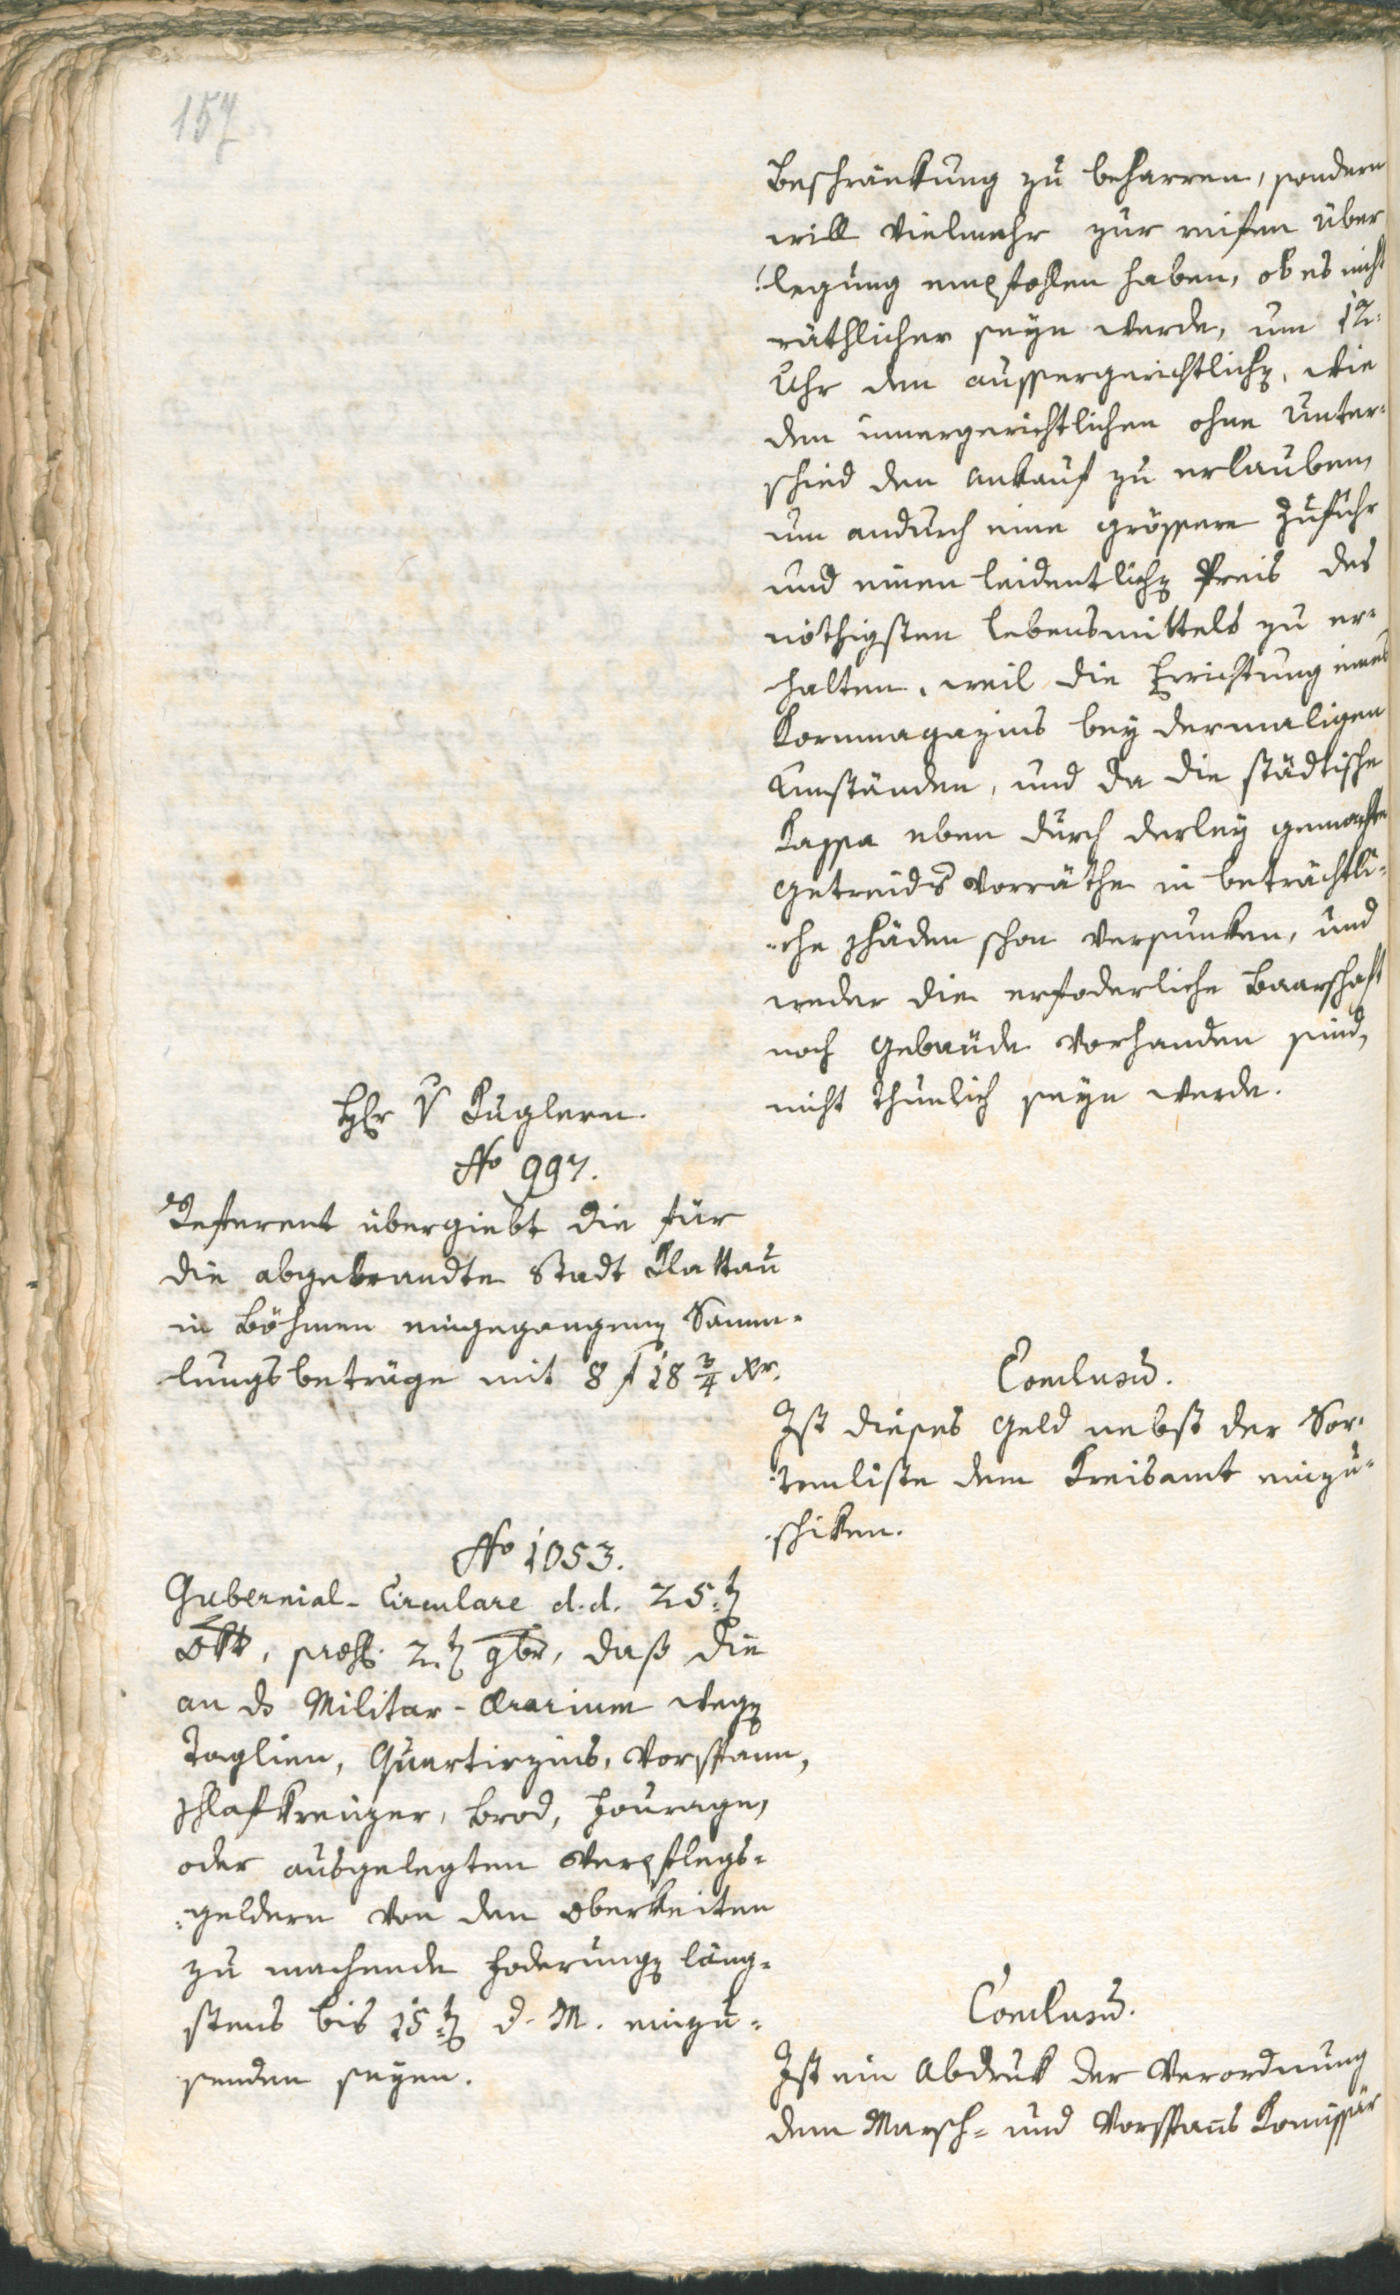 157
Beschränkung zu beharren, sondern
will vielmehr zur reifen über
legung empfohlen haben, ob es nicht
räthlicher seyn werde, um 12.
Uhr den aussergerichtlichen, wie
den innergerichtlichen ohne Unter-
schied den Ankauf zu erlauben,
um andurch eine grössere Zufuhr
und einen leidentlichen Preis des
nöthigsten Lebensmittels zu er-
halten, weil die Errichtung eines
Kornmagazins bey dermaligen
Umständen, und da die städtische
Kassa eben durch derley gemachte
Getreids Vorräthe in beträchtli-
-che Schäden schon versunken, und
weder die erfoderliche Baarschaft
noch Gebäude vorhanden sind,
nicht thunlich seyn werde.
Hr v Kuglern.
No 997.
Referent übergiebt die für
die abgebrandte Stadt Klattau
in Böhmen eingegangenen Samm-
lungsbeträge mit 8 f 18 3/4 xr.
Conclusum.
Ist dieses Geld nebst der Sor-
tenliste dem Kreisamt einzu-
schiken.
No 1053.
Gubernial-Circulare d.d. 25.ten
Okt, praes. 2.ten 9br, daß die
an ds Militar-Aerarium wegen
Taglien, Quartirzins, Vorspann,
Schlafkreuzer, Brod, Fourage,
oder ausgelegten Verpflegs-
-geldern von den Oberkeiten
zu machende Foderungen läng-
stens bis 15.ten d. M. einzu-
senden seyen.
Conclusum.
Ist ein Abdruk der Verordnung
dem Marsch- und Vorspanns Komissär